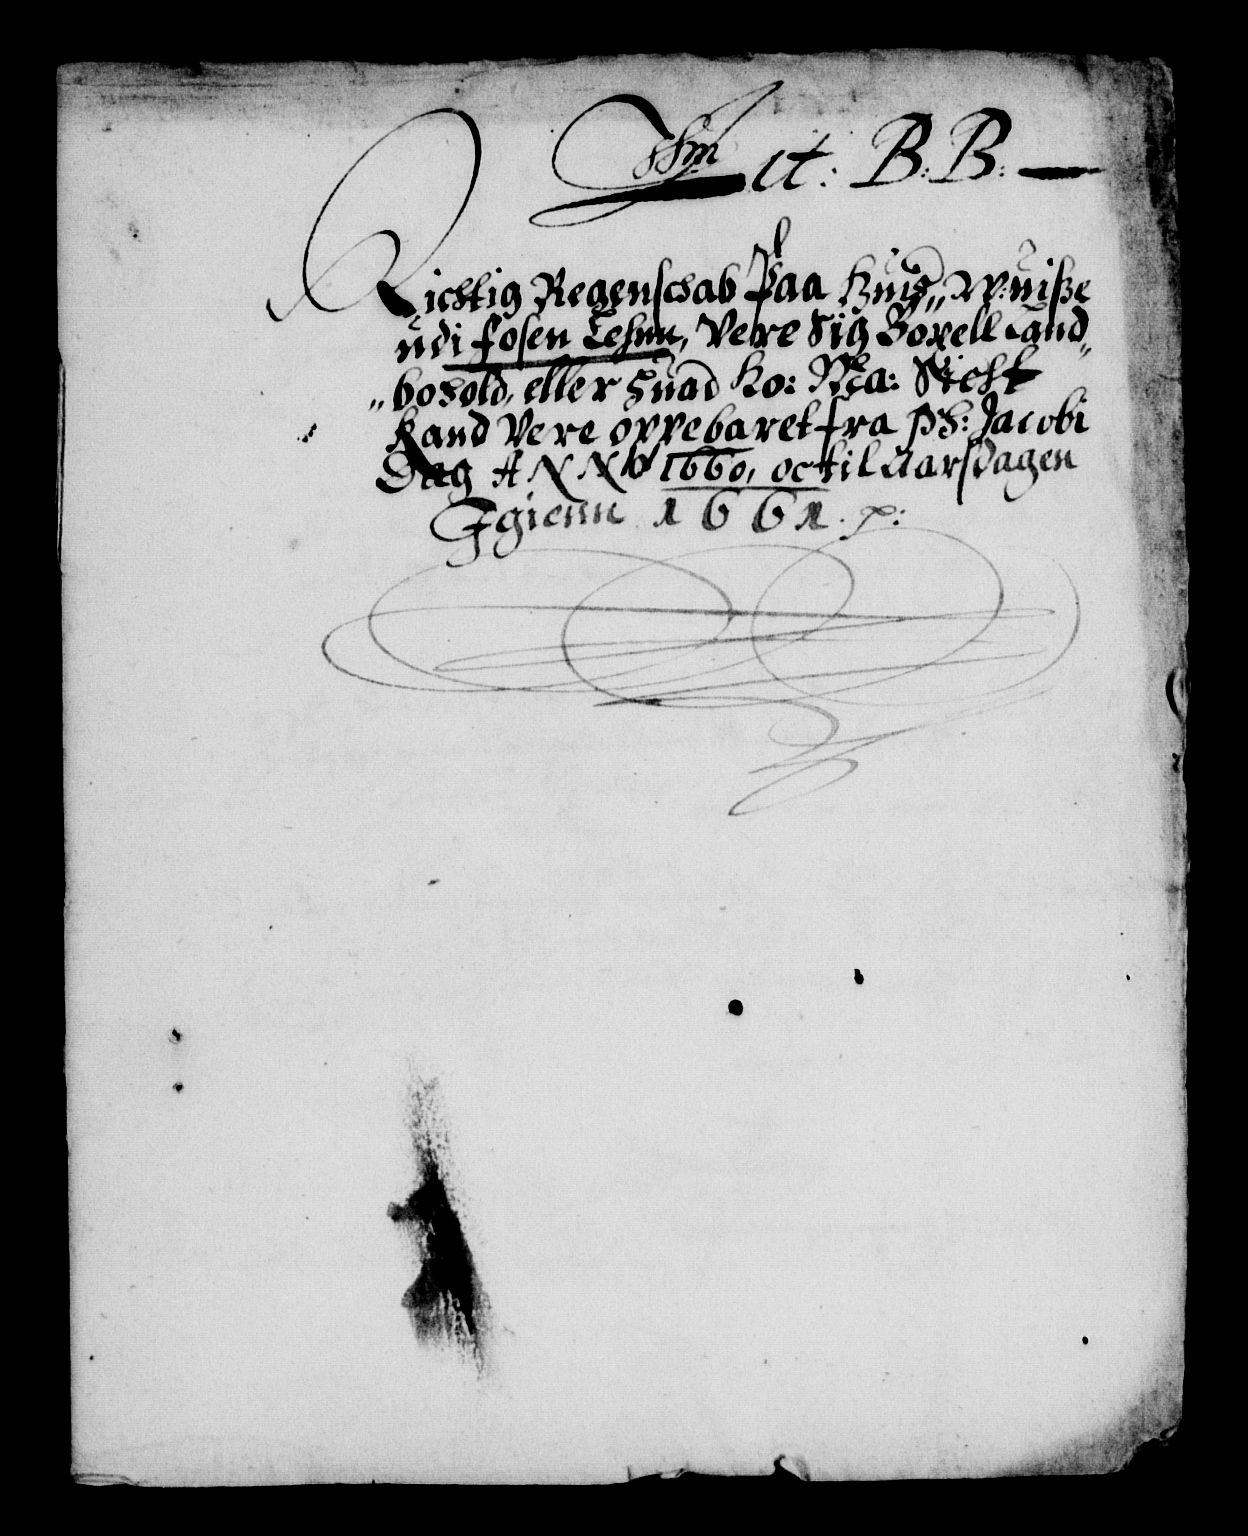 Lit: B: B:
Richtig Regenschab Paa huis W: uiße
udi fosen Lehnn, Vere sig Boxell Land„
„bohold, eller huad Ko: Ma: Rest
Kand Vere oppebaret fra Ph: Jacobi
Dag ANNO 1660, och til Aarsdagen
Igienn 1661. p: